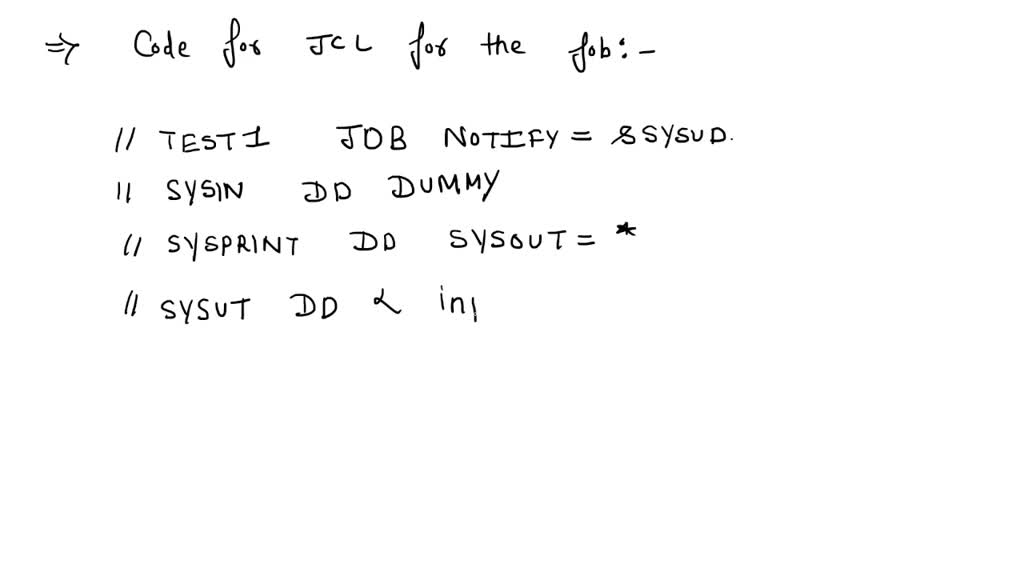 ⇒ Code for JCL for the job:-
// TEST1 JOB NOTIFY = &SYSUD.
// SYSIN DD DUMMY
// SYSPRINT DD SYSOUT = *
// SYSUT DD < inp